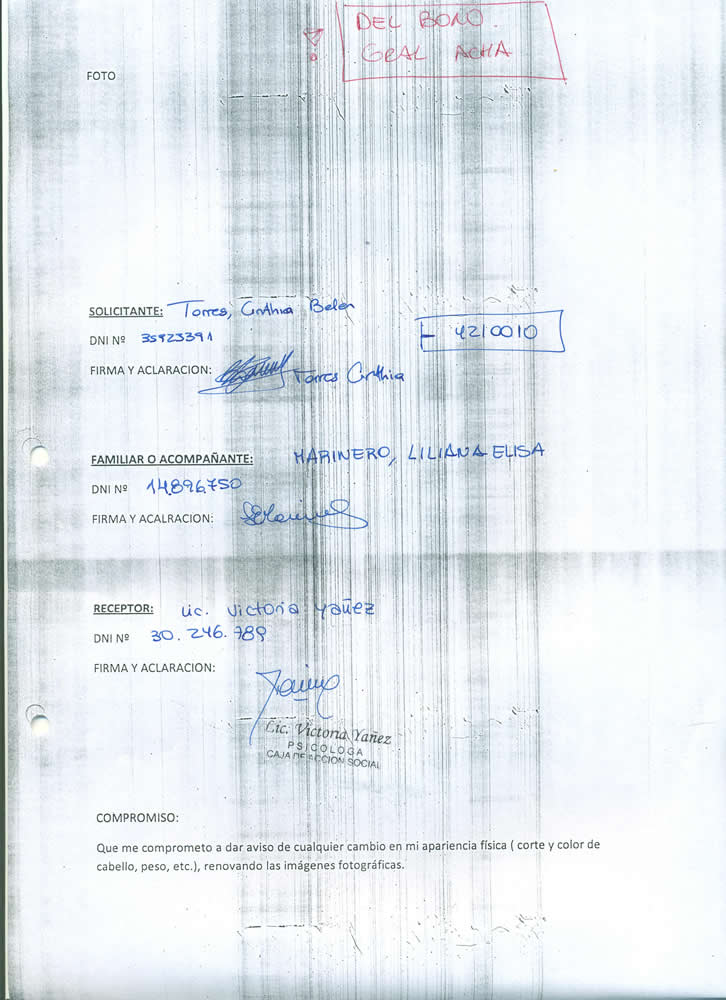 DEL BONO.
GRAL ACHA
FOTO
SOLICITANTE: Torres, Cinthia Belen
DNI Nº 35923391
4210010
FIRMA Y ACLARACION: Torres Cinthia
FAMILIAR O ACOMPAÑANTE: MARINERO, LILIANA ELISA
DNI Nº 14.896.750
FIRMA Y ACALRACION:
RECEPTOR: Lic. Victoria Yañez
DNI Nº 30.246.789
FIRMA Y ACLARACION:
Lic. Victoria Yañez
PSICOLOGA
CAJA DE ACCION SOCIAL
COMPROMISO:
Que me comprometo a dar aviso de cualquier cambio en mi apariencia física ( corte y color de
cabello, peso, etc.), renovando las imágenes fotográficas.